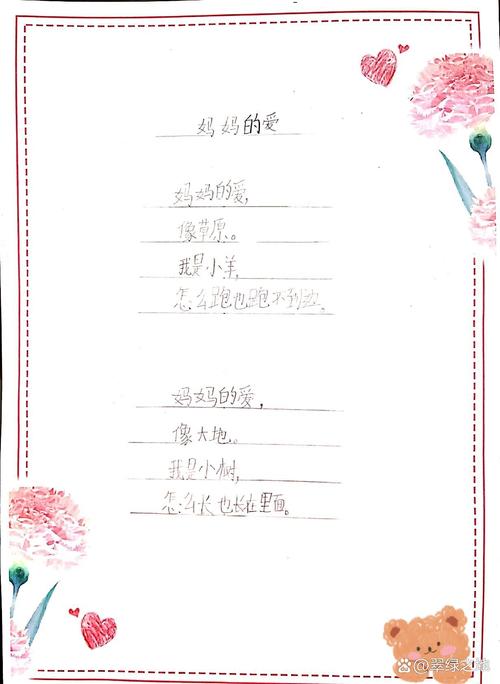 妈妈的爱
妈妈的爱,
像草原。
我是小羊,
怎么跑也跑不到边。
妈妈的爱,
像大地。
我是小树,
怎么长也长在里面。